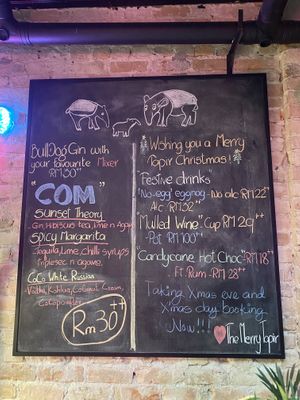 BullDog Gin with
your favourite Mixer
RM30
"COM"
Sunset Theory
- Gin, Hibiscus tea, lime n Agave
Spicy Margarita
Tequila, Lime, Chilli syrups
Triplesec n agave.
CoCo White Russian
Vodka, Kahlua, Coconut Cream,
Coco powder
Rm 30++
Wishing you a Merry
Tapir Christmas!
"Festive drinks"
"No-egg" eggnog - No alc RM22
Alc - RM32++
"Mulled Wine" Cup RM29++
- Pot RM100++
"Candycane Hot Choc - RM18"
Ft. Rum - RM28++
Taking Xmas eve and
Xmas day booking
Now!!!
The Merry Tapir